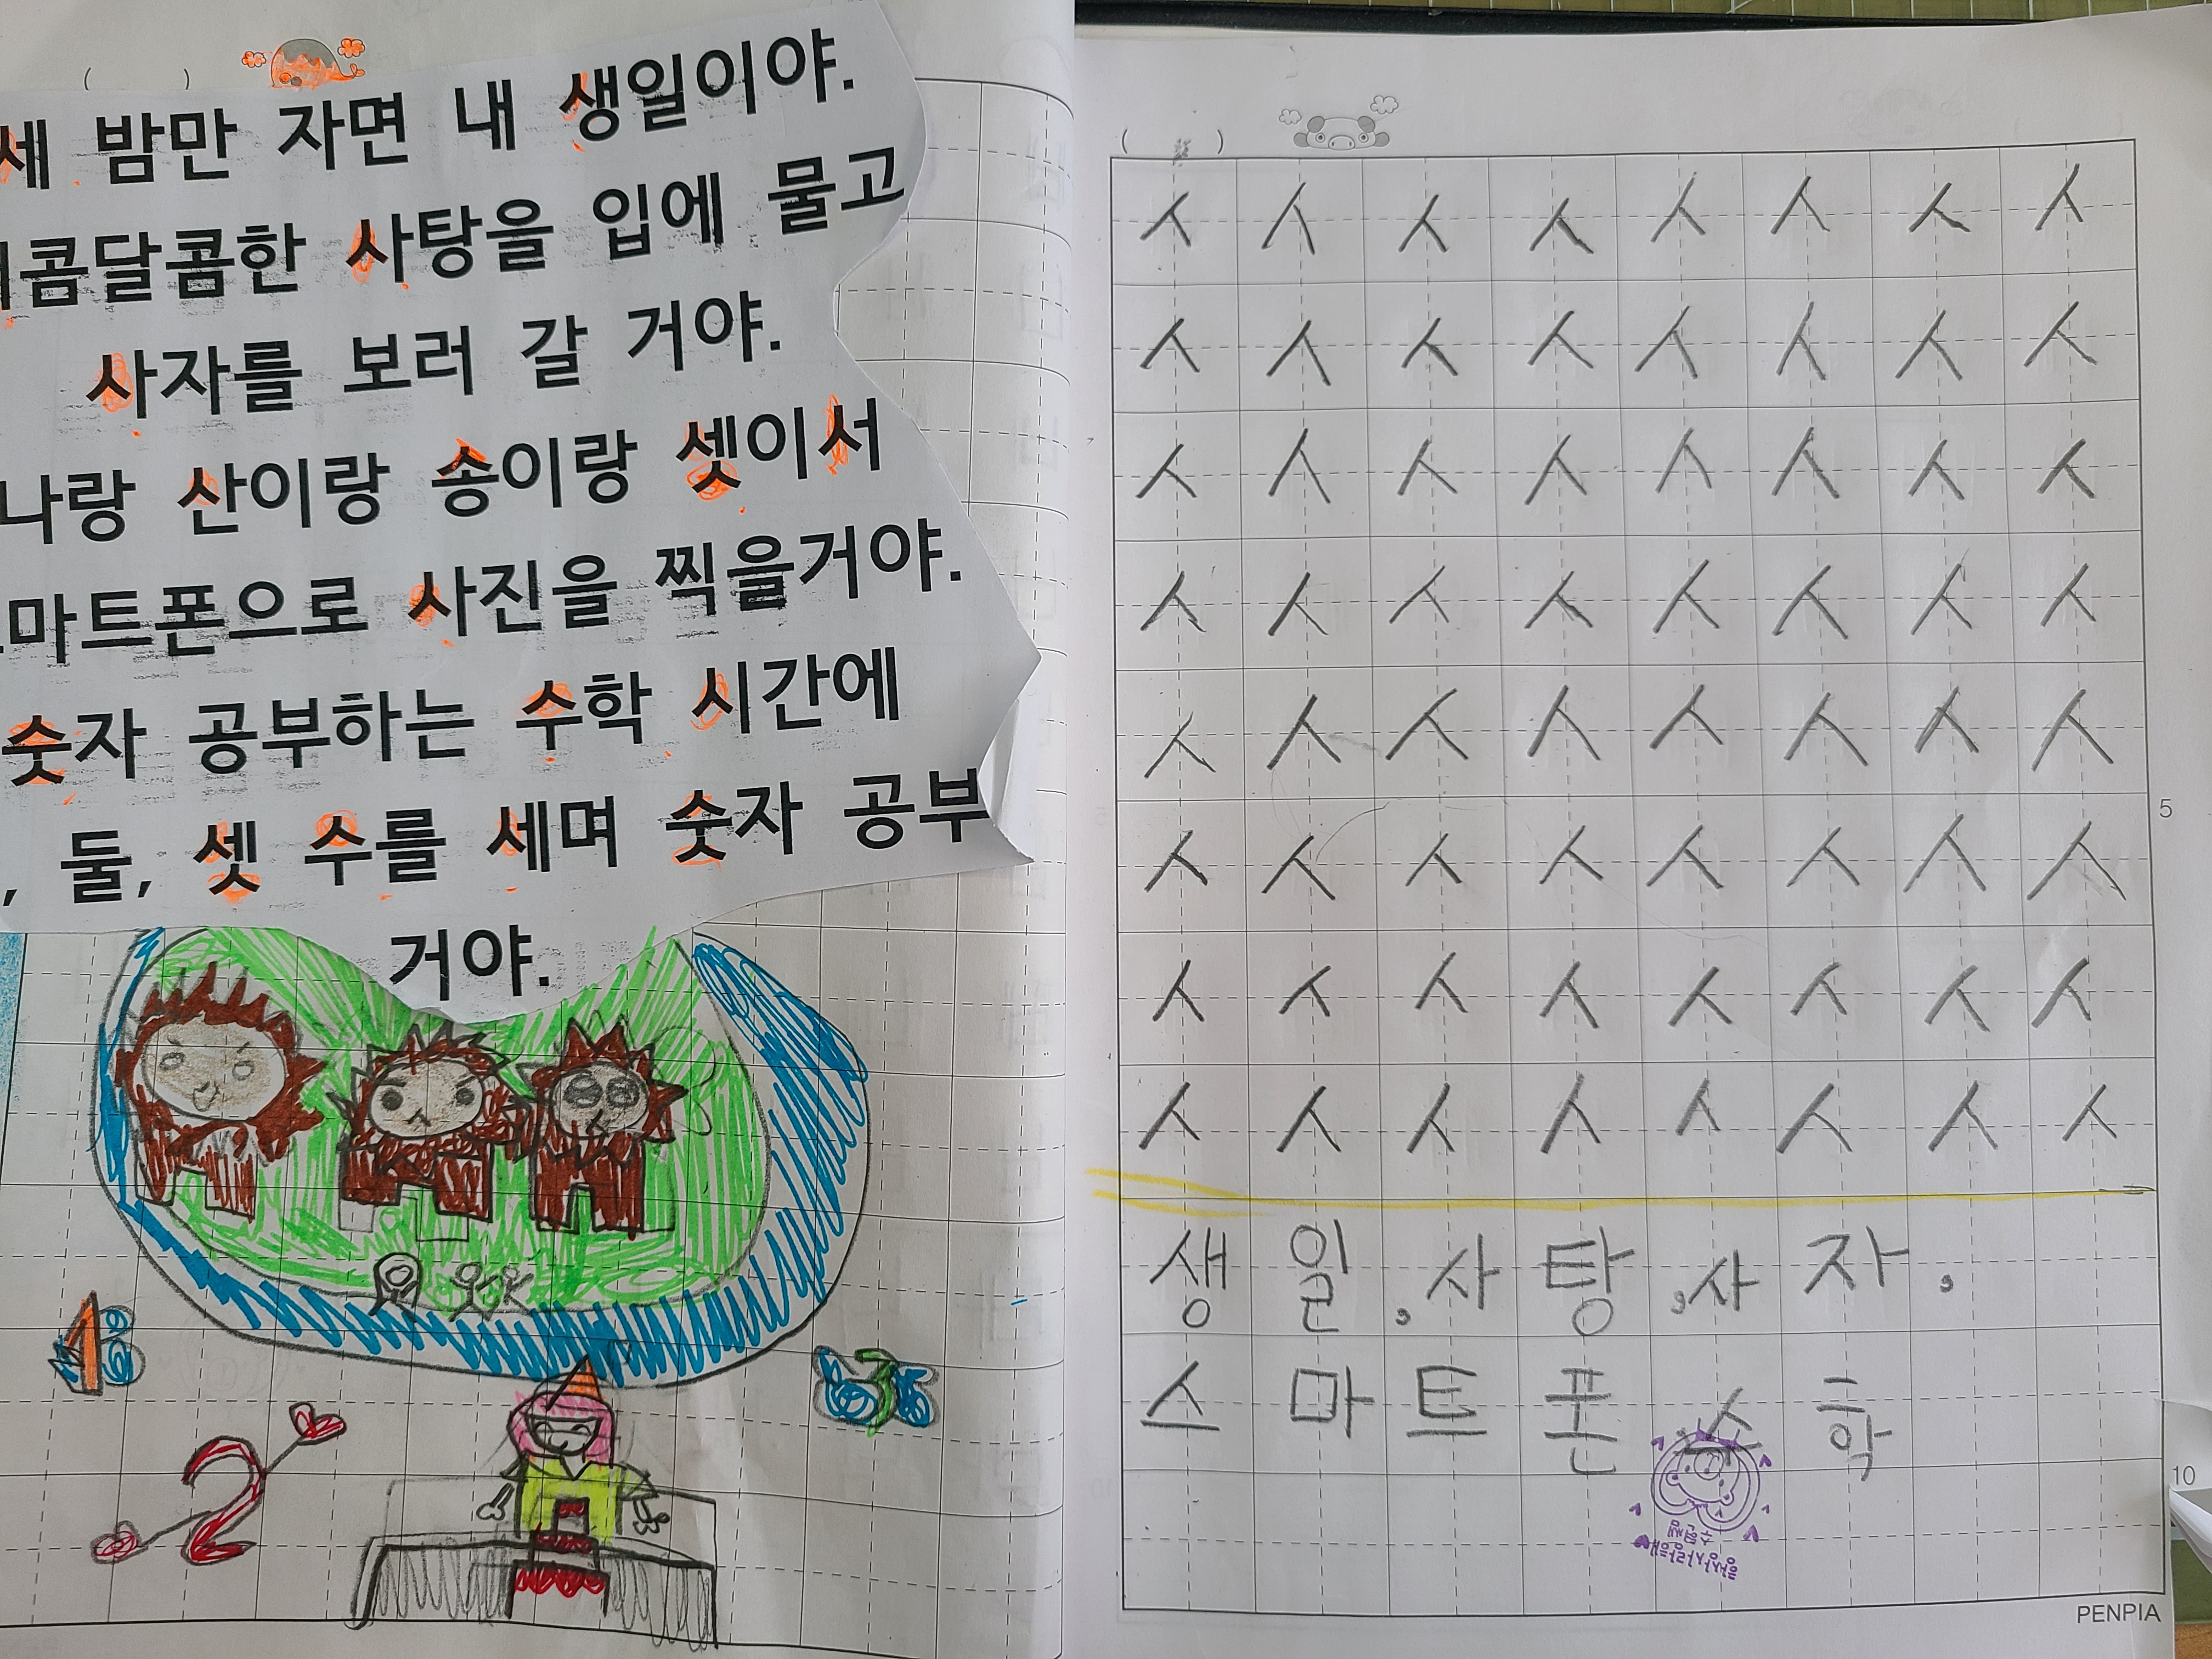 세 밤만 자면 내 생일이야.
콤달콤한 사탕을 입에 물고
사자를 보러 갈 거야.
나랑 산이랑 송이랑 셋이서
마트폰으로 사진을 찍을거야.
숫자 공부하는 수학 시간에
, 둘, 셋 수를 세며 숫자 공부
거야.
1
2
3
( )
( )
ㅅ ㅅ ㅅ ㅅ ㅅ ㅅ ㅅ ㅅ
ㅅ ㅅ ㅅ ㅅ ㅅ ㅅ ㅅ ㅅ
ㅅ ㅅ ㅅ ㅅ ㅅ ㅅ ㅅ ㅅ
ㅅ ㅅ ㅅ ㅅ ㅅ ㅅ ㅅ ㅅ
ㅅ ㅅ ㅅ ㅅ ㅅ ㅅ ㅅ ㅅ
5
ㅅ ㅅ ㅅ ㅅ ㅅ ㅅ ㅅ ㅅ
ㅅ ㅅ ㅅ ㅅ ㅅ ㅅ ㅅ ㅅ
ㅅ ㅅ ㅅ ㅅ ㅅ ㅅ ㅅ ㅅ
생일,사탕,사자.
스마트폰 수학
10
PENPIA